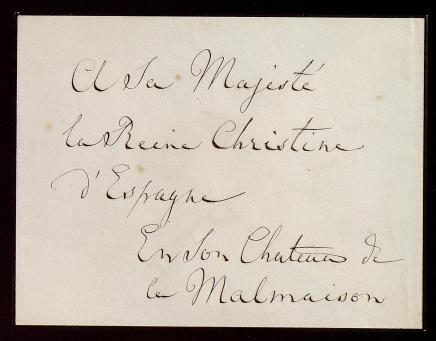 A Sa Majesté
la Reine Christine
d'Espagne
En Son Chateau de
la Malmaison